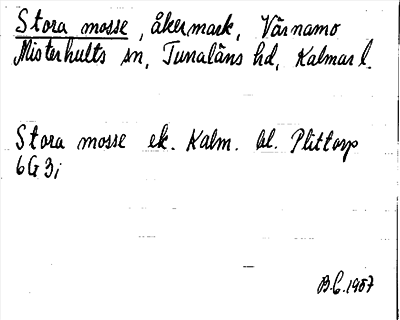 Stora mosse, åkermark, Värnamo
Misterhults sn, Tunaläns hd, Kalmar l.
Stora mosse ek. Kalm. bl. Plittorp
6G3i
B.C. 1987